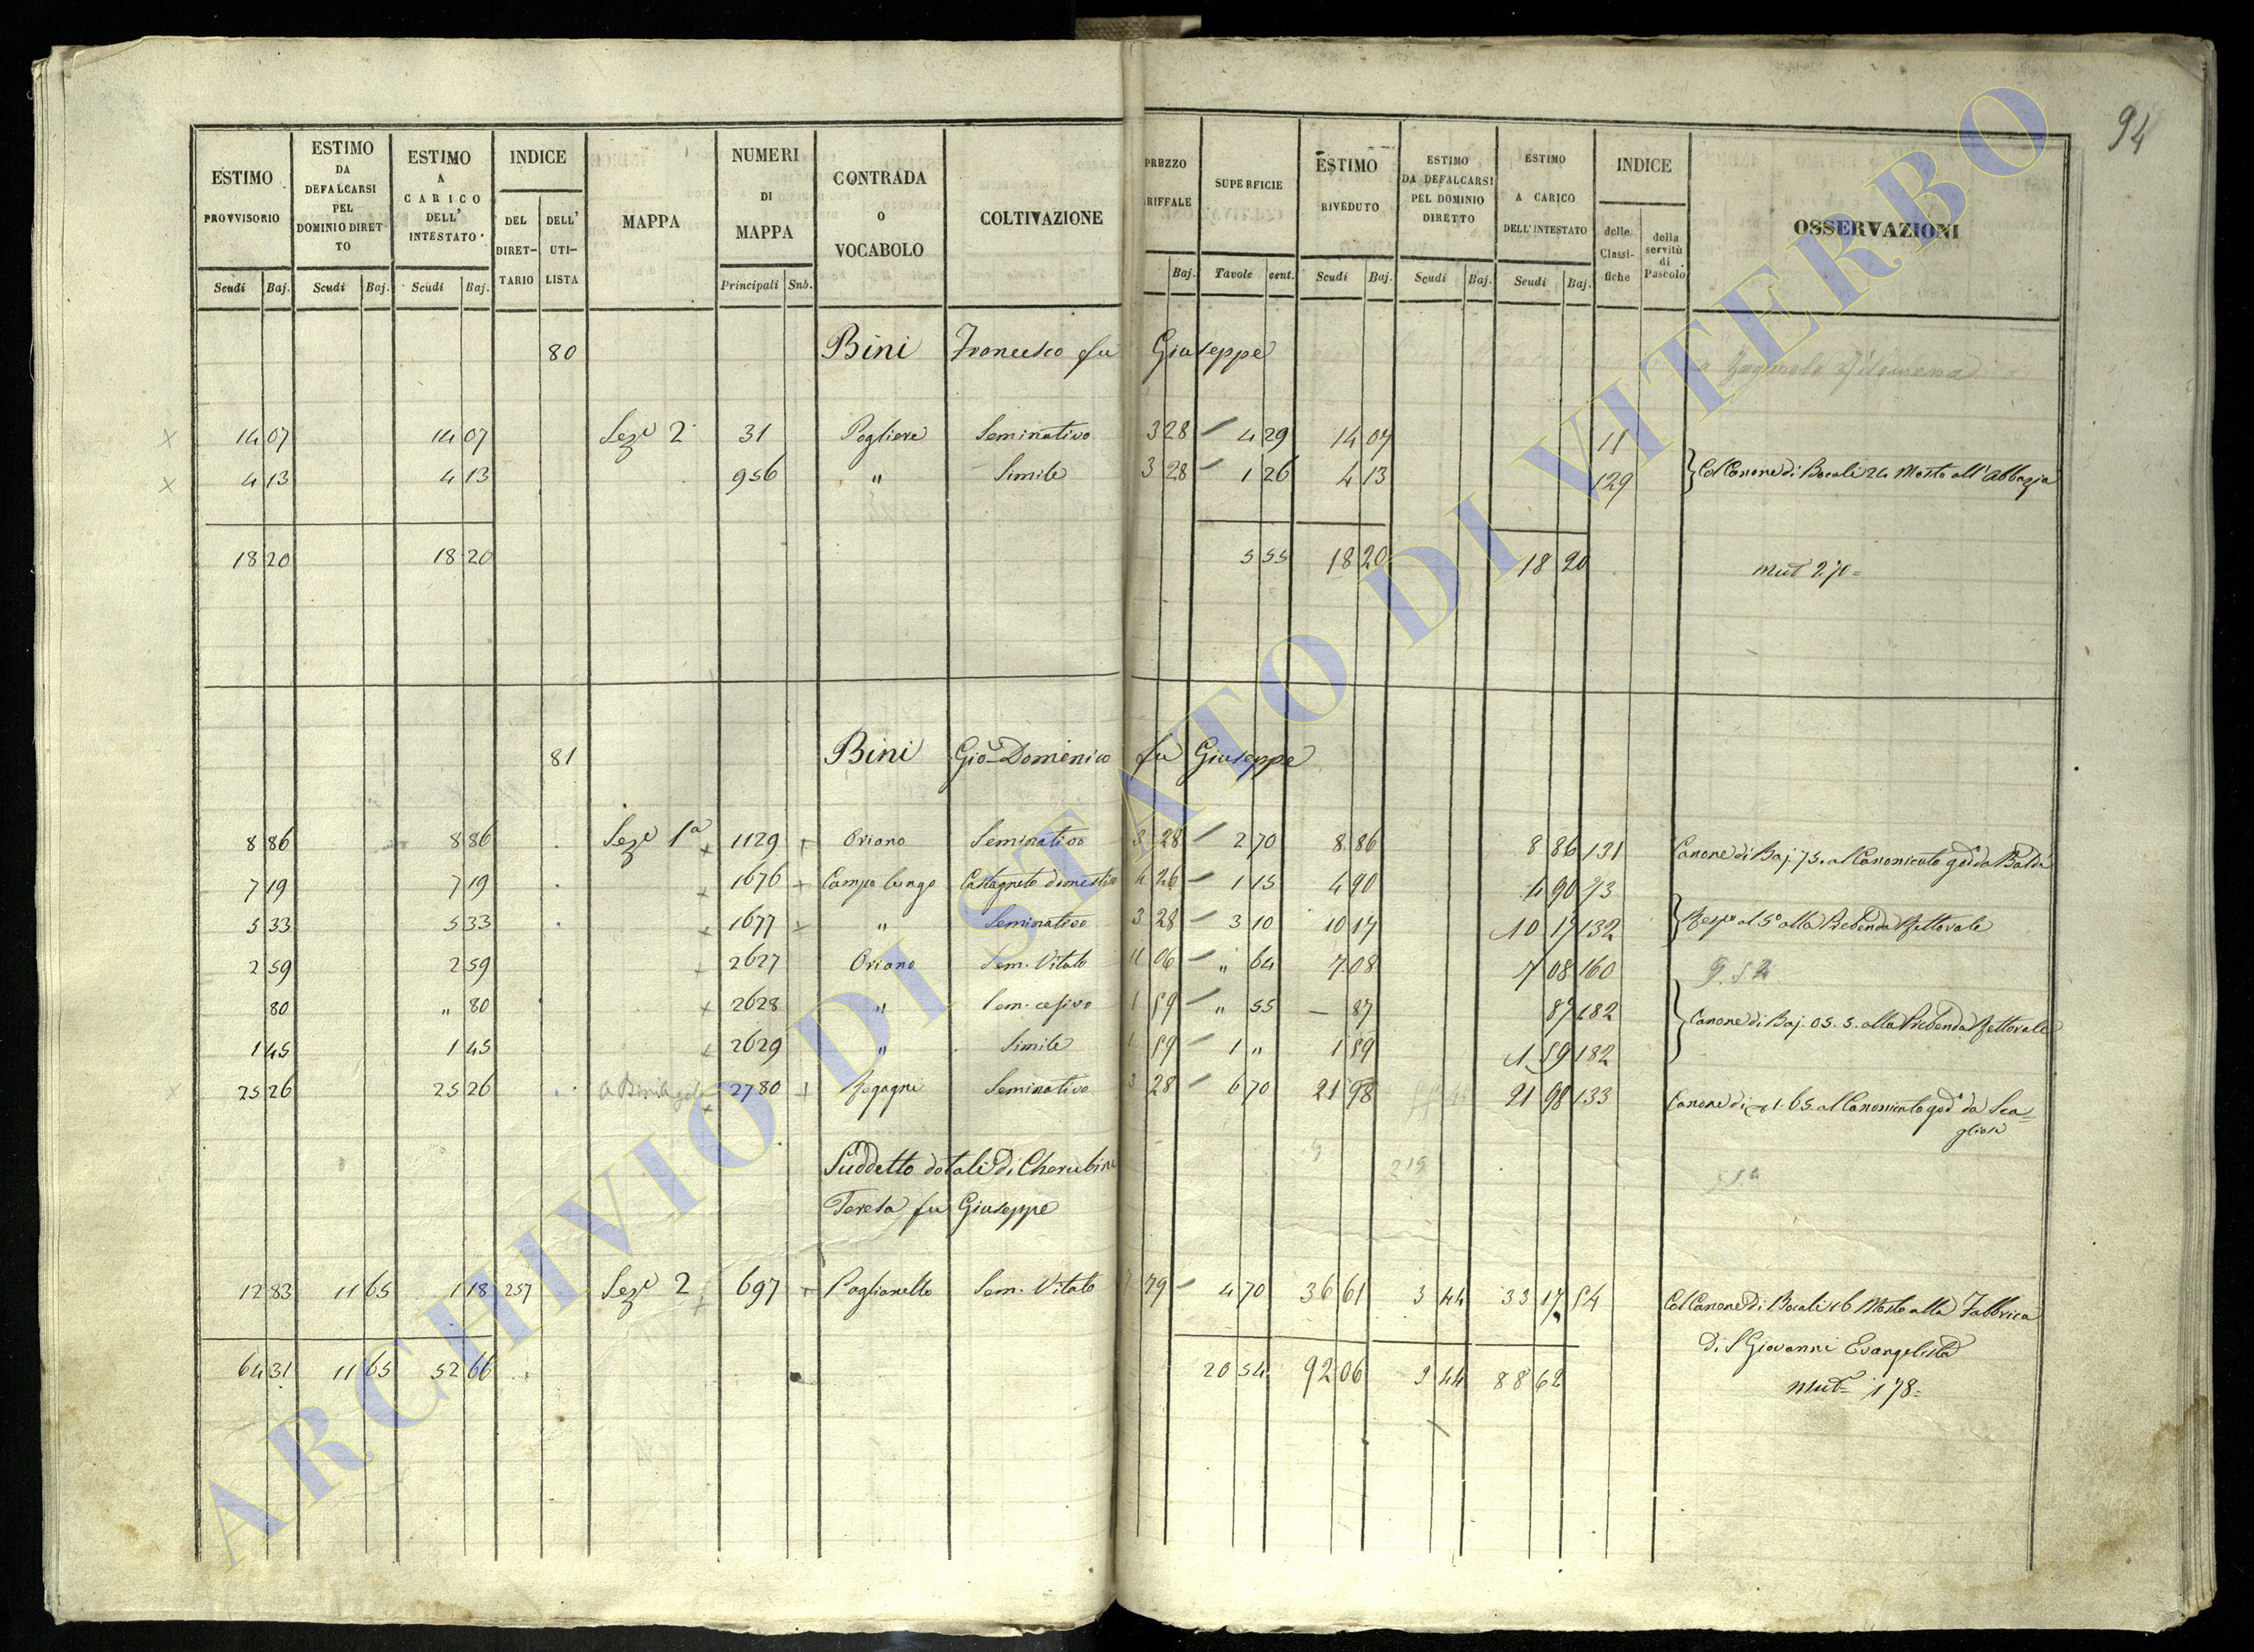 94
ESTIMO PROVVISORIO
ESTIMO DA DEFALCARSI PEL DOMINIO DIRETTO
ESTIMO A CARICO DELL' INTESTATO
INDICE
DEL DIRETTARIO
DELL' UTILISTA
MAPPA
NUMERI DI MAPPA
CONTRADA O VOCABOLO
COLTIVAZIONE
PREZZO RIFFALE
SUPERFICIE
ESTIMO RIVEDUTO
ESTIMO DA DEFALCARSI PEL DOMINIO DIRETTO
ESTIMO A CARICO DELL' INTESTATO
INDICE
delle Classifiche
della servitù di Pascolo
OSSERVAZIONI
Scudi Baj. Scudi Baj. Scudi Baj. Principali Sub. Baj. Tavole cent. Scudi Baj. Scudi Baj. Scudi Baj.
80 Bini Francesco fu Giuseppe
14 07 14 07 Seze 2 31 Pogliere Seminativo 3 28 4 29 14 07 11
4 13 4 13 956 " Simile 3 28 1 26 4 13 129 Col Canone di Bocali 24 Mosto all' Abbazia
18 20 18 20 5 55 18 20 18 20 mut
81 Bini Gio Domenico fu Giuseppe
8 86 8 86 Seze 1a 1129 Oriano Seminativo 3 28 2 70 8 86 8 86 131 Canone di Baj 75. al Canonicato god da Baldi
7 19 7 19 1676 Campo lungo Castagneto domestico 4 26 1 15 4 90 4 90 73
5 33 5 33 1677 " Seminativo 3 28 3 10 10 17 10 17 132 al 5o alla Prebenda Rettorale
2 59 2 59 2627 Oriano Sem. Vitato 11 06 " 64 7 08 7 08 160
80 " 80 2628 " Sem. cesivo 1 59 " 55 87 87 182 Canone di Baj. 05. 5. alla Prebenda Rettorale
1 45 1 45 2629 " Simile 1 59 1 " 1 59 1 59 182
25 26 25 26 2780 Regagni Seminativo 3 28 6 70 21 98 21 98 133 Canone di 1. 65. al Canonicato god da Sca=
gliosi
Suddetto dotali di Cherubini
Teresa fu Giuseppe
12 83 11 65 1 18 257 Seze 2 697 Poglianello Sem. Vitato 7 79 4 70 36 61 3 44 33 17 54 Col Canone di Bocali 16 Mosto alla Fabbrica
di S Giovanni Evangelista
64 31 11 65 52 66 20 54 92 06 3 44 88 62 mut= 178=
ARCHIVIO DI STATO DI VITERBO